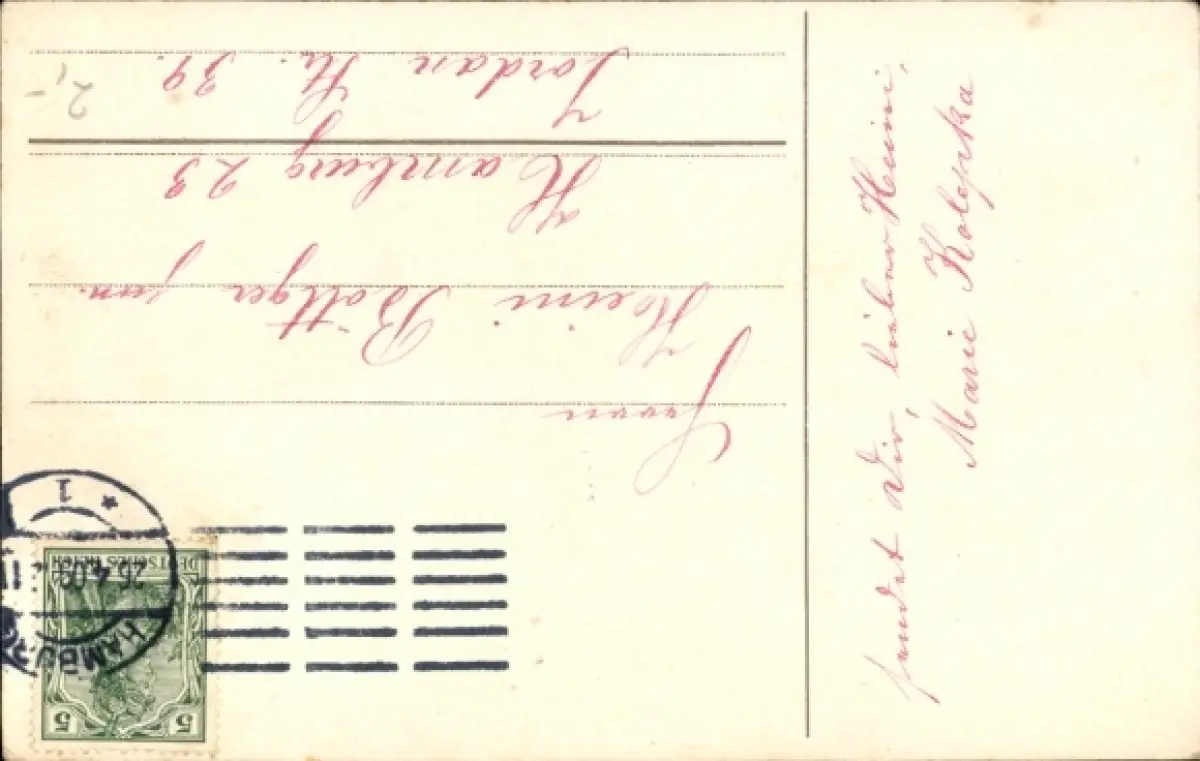 Herrn
Heini Böttger jun.
Hamburg 23
Jordan Str. 39.
2,-
sendet Dir, lieber Heini,
Marie Kolepka
HAMBURG
26.4.09
* 1
DEUTSCHES REICH
5 5